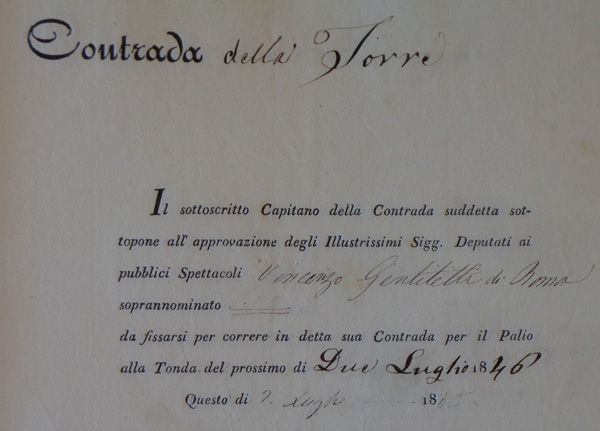 Contrada della Torre
Il sottoscritto Capitano della Contrada suddetta sot-
topone all' approvazione degli Illustrissimi Sigg. Deputati ai
pubblici Spettacoli Vincenzo Gentiletti di Roma
soprannominato
da fissarsi per correre in detta sua Contrada per il Palio
alla Tonda del prossimo dì Due Luglio 1846
Questo dì 2. Luglio 18